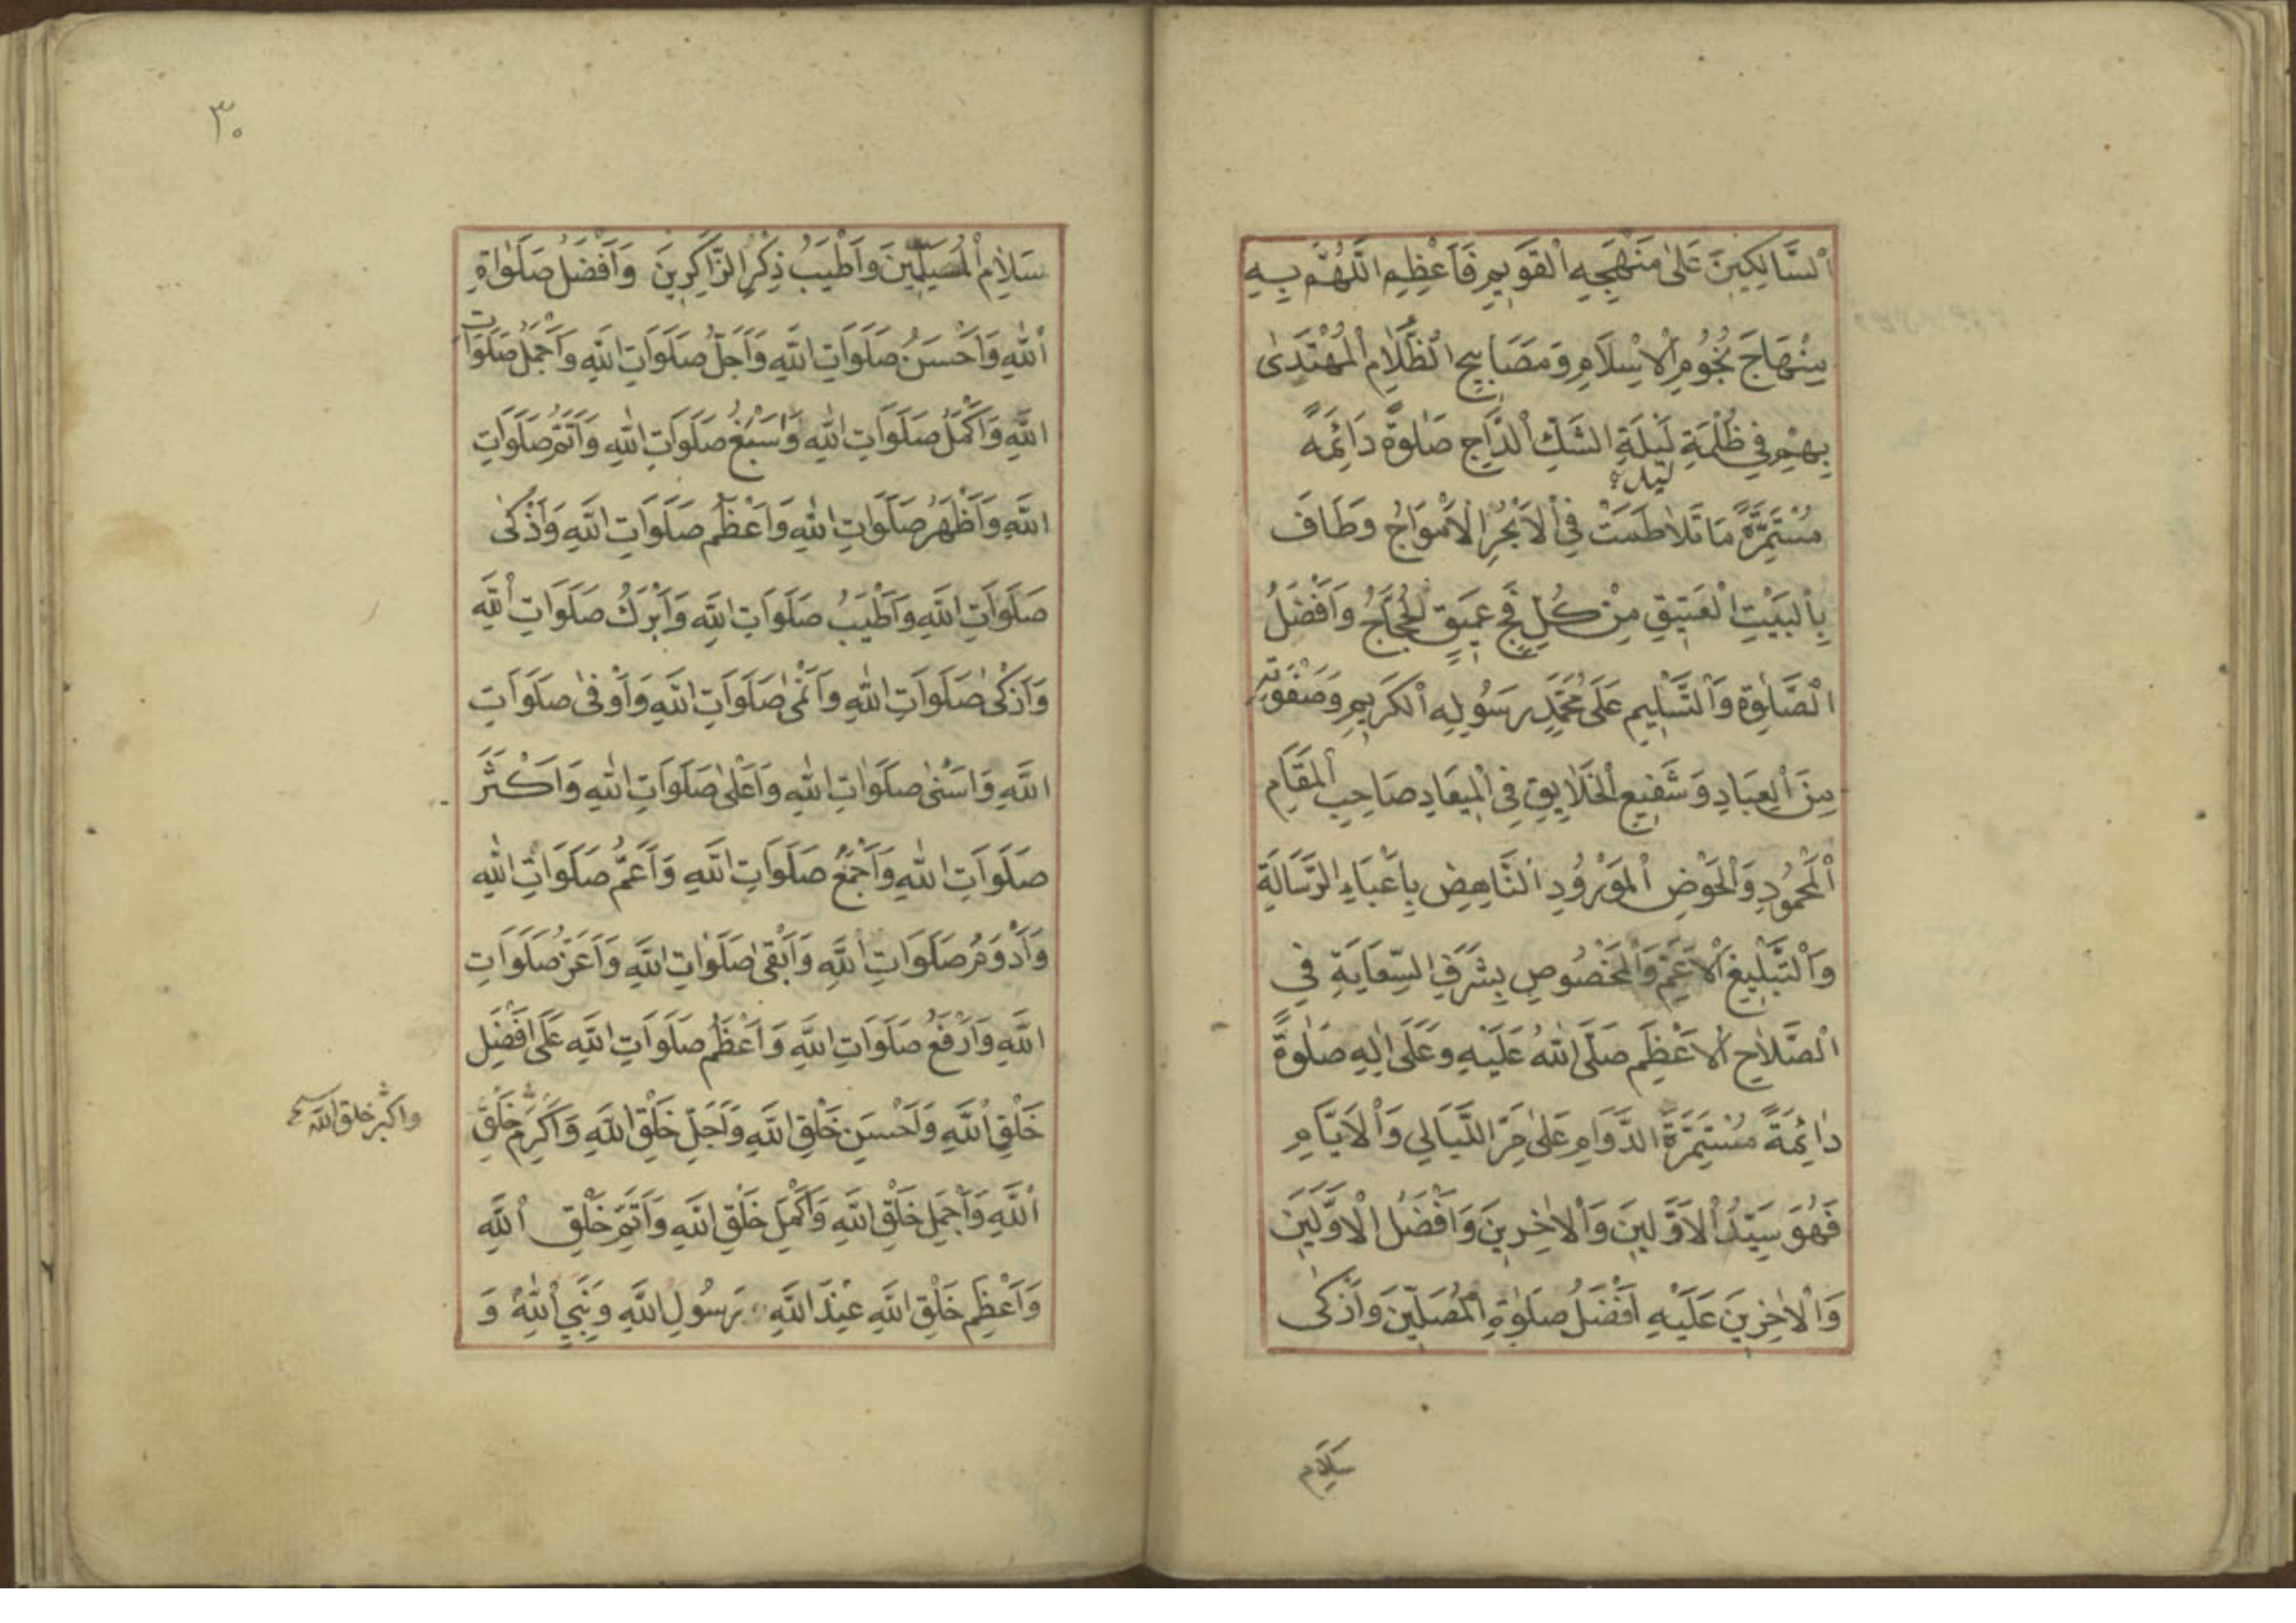 اَلسَّالِكِينَ عَلٰى مَنْهَجِهِ الْقَوِيمِ فَاَعْظِمِ اللّٰهُمَّ بِهِ
مِنْهَاجَ نُجُومِ الْاِسْلَامِ وَمَصَابِيحِ الظَّلَامِ الْمُهْتَدٰى
بِهِمْ فِي ظُلْمَةِ لَيْلَةِ الشَّكِّ الدَّاجِ صَلٰوةً دَائِمَةً
ليل
مُسْتَمِرَّةً مَا تَلَاطَمَتْ فِي الْاَبْحُرِ الْاَمْوَاجُ وَطَافَ
بِالْبَيْتِ الْعَتِيقِ مِنْ كُلِّ فَجٍّ عَمِيقٍ الْحُجَّاجُ وَاَفْضَلُ
الصَّلٰوةِ وَالتَّسْلِيمِ عَلٰى مُحَمَّدٍ رَسُولِهِ الْكَرِيمِ وَصَفْوَتِهِ
مِنَ الْعِبَادِ وَشَفِيعِ الْخَلَايِقِ فِي الْمِيعَادِ صَاحِبِ الْمَقَامِ
الْمَحْمُودِ وَالْحَوْضِ الْمَوْرُودِ النَّاهِضِ بِاَعْبَاءِ الرِّسَالَةِ
وَالتَّبْلِيغِ الْاَعَمِّ وَالْمَخْصُوصِ بِشَرَفِ السِّعَايَةِ فِي
الصَّلَاحِ الْاَعْظَمِ صَلَّى اللّٰهُ عَلَيْهِ وَعَلٰى اٰلِهِ صَلٰوةً
دَائِمَةً مُسْتَمِرَّةَ الدَّوَامِ عَلٰى مَرِّ اللَّيَالِي وَالْاَيَّامِ
فَهُوَ سَيِّدُ الْاَوَّلِينَ وَالْاٰخِرِينَ وَاَفْضَلُ الْاَوَّلِينَ
وَالْاٰخِرِينَ عَلَيْهِ اَفْضَلُ صَلٰوةِ الْمُصَلِّينَ وَاَزْكٰى
سَلَامِ
٣٠
سَلَامِ الْمُسَلِّمِينَ وَاَطْيَبُ ذِكْرِ الذَّاكِرِينَ وَاَفْضَلُ صَلَوَاةِ
اللّٰهِ وَاَحْسَنُ صَلَوَاتِ اللّٰهِ وَاَجَلُّ صَلَوَاتِ اللّٰهِ وَاَجْمَلُ صَلَوَاتِ
اللّٰهِ وَاَكْمَلُ صَلَوَاتِ اللّٰهِ وَاَسْبَغُ صَلَوَاتِ اللّٰهِ وَاَتَمُّ صَلَوَاتِ
اللّٰهِ وَاَظْهَرُ صَلَوَاتِ اللّٰهِ وَاَعْظَمُ صَلَوَاتِ اللّٰهِ وَاَذْكٰى
صَلَوَاتِ اللّٰهِ وَاَطْيَبُ صَلَوَاتِ اللّٰهِ وَاَبْرَكُ صَلَوَاتِ اللّٰهِ
وَاَزْكٰى صَلَوَاتِ اللّٰهِ وَاَنْمٰى صَلَوَاتِ اللّٰهِ وَاَوْفٰى صَلَوَاتِ
اللّٰهِ وَاَسْنٰى صَلَوَاتِ اللّٰهِ وَاَعْلٰى صَلَوَاتِ اللّٰهِ وَاَكْثَرُ
صَلَوَاتِ اللّٰهِ وَاَجْمَعُ صَلَوَاتِ اللّٰهِ وَاَعَمُّ صَلَوَاتِ اللّٰهِ
وَاَدْوَمُ صَلَوَاتِ اللّٰهِ وَاَبْقٰى صَلَوَاتِ اللّٰهِ وَاَعَزُّ صَلَوَاتِ
اللّٰهِ وَاَرْفَعُ صَلَوَاتِ اللّٰهِ وَاَعْظَمُ صَلَوَاتِ اللّٰهِ عَلٰى اَفْضَلِ
خَلْقِ اللّٰهِ وَاَحْسَنِ خَلْقِ اللّٰهِ وَاَجَلِّ خَلْقِ اللّٰهِ وَاَكْرَمِ خَلْقِ
واكثر خلق الله
اللّٰهِ وَاَجْمَلِ خَلْقِ اللّٰهِ وَاَكْمَلِ خَلْقِ اللّٰهِ وَاَتَمِّ خَلْقِ اللّٰهِ
وَاَعْظَمِ خَلْقِ اللّٰهِ عِنْدَ اللّٰهِ رَسُولِ اللّٰهِ وَنَبِيِّ اللّٰهِ وَ